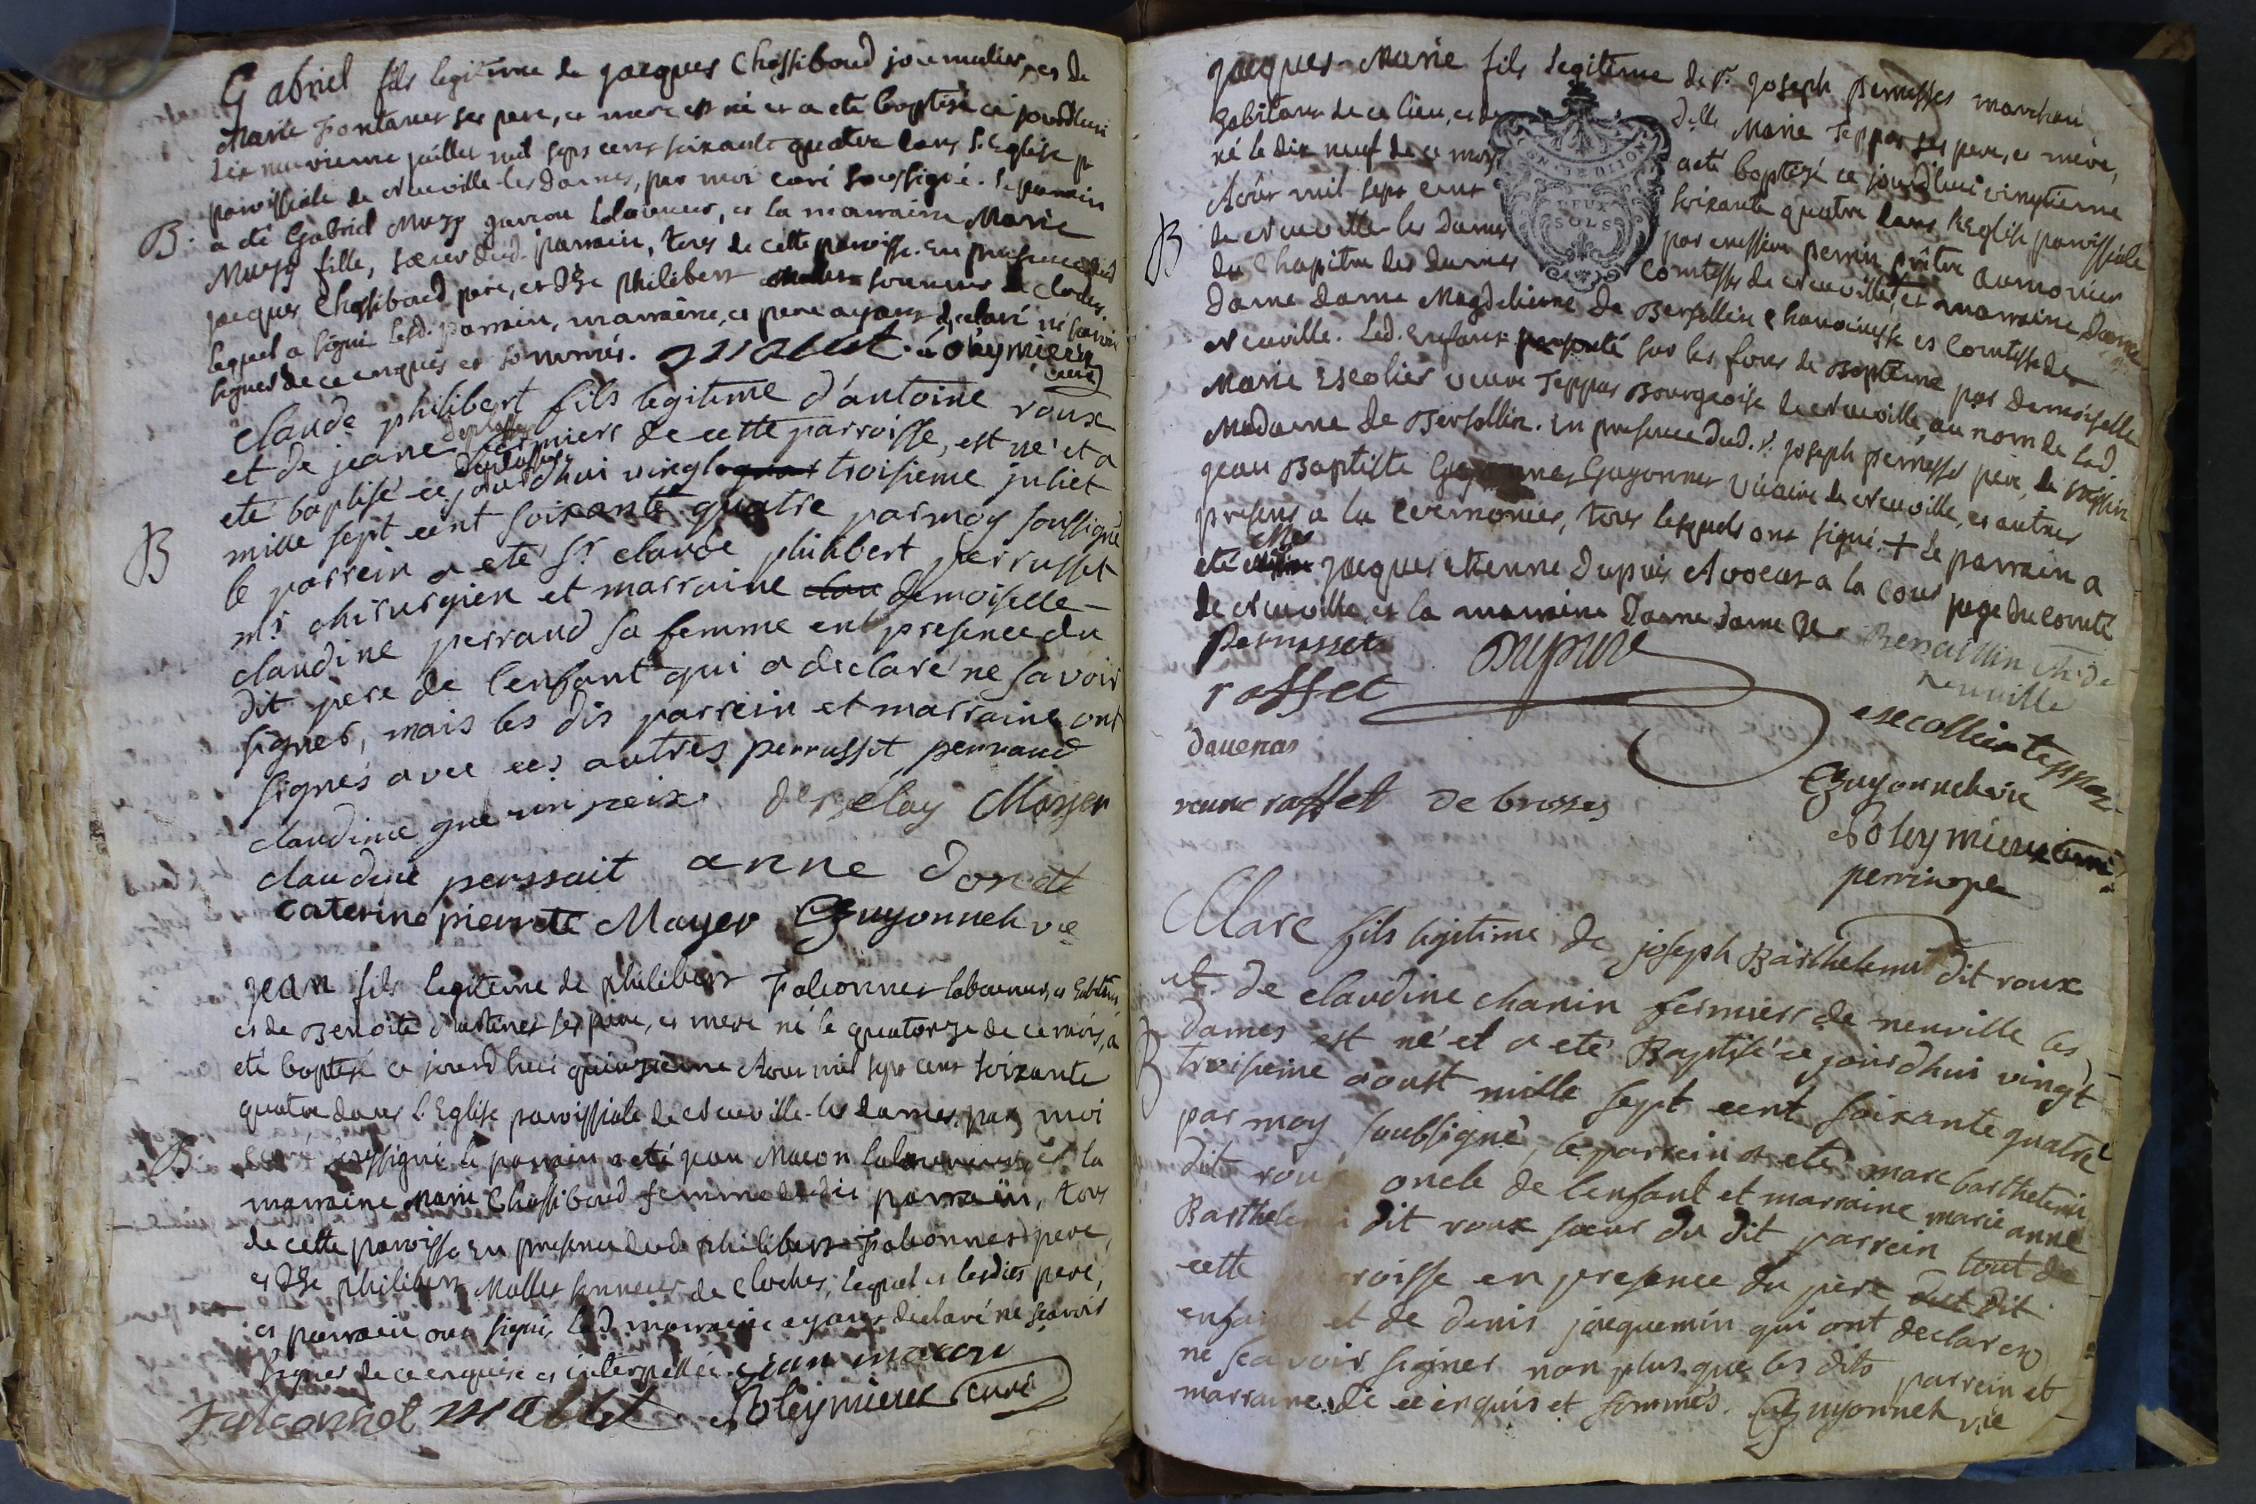 Gabriel fils legitime de Jacques Chossiboud journalier, et de
Marie Fontanet ses pere, et mere est né et a eté baptisé ce jourdhui
dix neuvieme juillet mil sept cent soixante quatre dans l'Eglise
paroissiale de Neuville-les Dames, par moi curé soussigné. Le parrain
B. a eté Gabriel Muzy garcon laboureur, et la marraine Marie
Muzy fille, sœur dud. parrain, tous de cette paroisse. En presence dud.
Jacques Chossiboud pere, et d'he Philibert Mallet sonneur de cloches,
lequel a signé lesd. parrain, marraine, et pere ayant declaré ne savoir
signer de ce enquis et sommés. Mallet. Poleymieux
curé
Claude philibert fils legitime d'antoine roux
et de jeane fermiers de cette parroisse, est né et a
eté baptisé ce jourdhui vingt troisieme juliet
B mille sept cent soixante quatre par moy soussigné
le parrein a eté Sr claude philibert perrusset
mr chirurgien et marraine demoiselle
claudine perraud sa femme en presence du
dit pere de l'enfant qui a declaré ne savoir
signer, mais les dis parrein et marraine ont
signés avec ces autres perrusset perraud
claudine guerinpeix deselay Moyer
claudine perssait anne donet
caterine pierrete Mayer Guyonnet vic
Jean fils legitime de Philibert Falconnet laboureur, et
et de Benoite Mastinet ses pere, et mere né le quatorze de ce mois, a
eté baptisé ce jourdhui quinzieme Aout mil sept cent soixante
quatre dans l'Eglise paroissiale de Neuville-les dames, par moi
B curé soussigné le parrain a eté jean Macon laboureur, et la
marraine Marie Chossiboud femme dudit parrain, tous
de cette paroisse En presence dud. philibert Falconnet pere,
et d'he philibert Mallet sonneur de cloches, lequel et lesdits pere,
et parrain ont signé, lad. marraine ayant declaré ne sçavoir
signer de ce enquise et interpellée. jean macon
Falconnet Mallet Poleymieux curé
Jacques-Marie fils legitime de sr. Joseph Perrusset marchand,
habitant de ce lieu, et de dlle Marie Teppas ses pere, et mere,
né le dix neuf de ce mois a eté baptisé ce jourdhui vingtieme
Aoûst mil sept cent soixante quatre dans l'Eglise paroissiale
B de Neuville les Dames par messire Perrin prêtre aumonier
du Chapitre des Dames Comtesses de Neuville, et marraine Dame
Dame Dame Magdeleine de Bersaillin Chanoinesse et Comtesse de
Neuville. Led. Enfant presenté sur les fonts de Baptême par demoiselle
Marie Escolier veuve Teppas Bourgeoise de Neuville au nom de lad.
Madame de Bersaillin. En presence dud. sr. Joseph Perrusset pere, de
Jean Baptiste Guyonnet vicaire de Neuville, et autres
presens a la ceremonie, tous lesquels ont signé. + le parrain a
eté Jacques Etienne Dupuis Avocat a la Cour juge du Comté
de Neuville, et la marraine Dame Dame De
GN. DE DIJON
DEUX
SOLS
Perrusset Dupuis Bersaillin Ch. de
neuville
raffet escollier teppas
davenas Guyonnet vic
veuve raffet de brosses
Poleymieux curé
perrin p
Marc fils legitime de joseph Barthelemi dit roux
et de claudine chanin fermiers de neuville les
B dames est né et a eté Baptisé ce jourdhui vingt
troisieme aoust mille sept cent soixante quatre
par moy soubsigné, le parrein a eté marc barthelemi
dit roux oncle de l'enfant et marraine marie anne
Barthelemi dit roux sœur du dit parrein tout de
cette parroisse en presence du pere dit
enfant et de denis jacquemin qui ont declarer
ne sçavoir signer non plus que les dits parrein et
marraine de ce enquis et sommés. Guyonnet vic